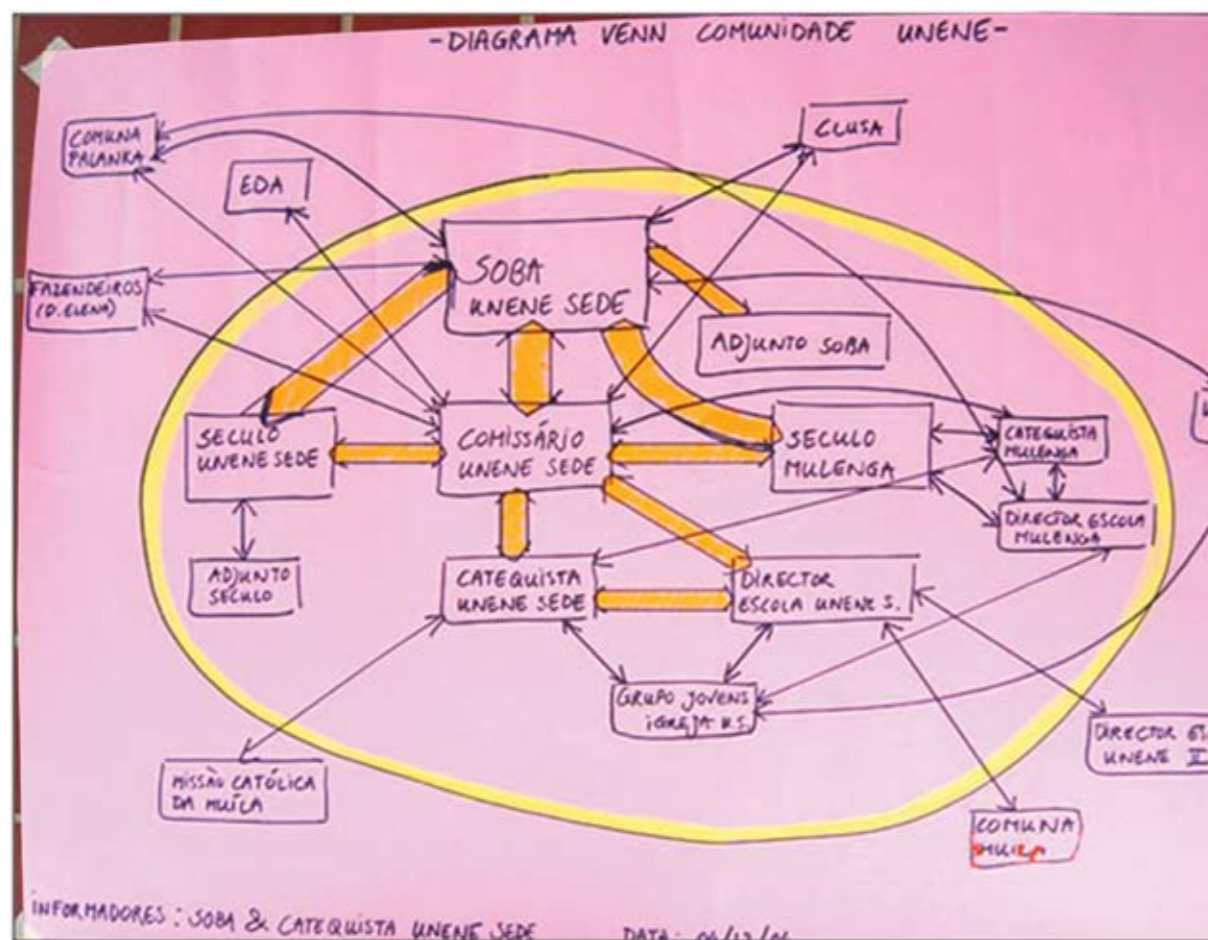 -DIAGRAMA VENN COMUNIDADE UNENE-
COMUNA
PALANKA
CLUSA
EDA
SOBA
UNENE SEDE
FAZENDEIROS
(D. ELENA)
ADJUNTO SOBA
SECULO
UNENE SEDE
COMISSÁRIO
UNENE SEDE
SECULO
MULENGA
CATEQUISTA
MULENGA
DIRECTOR ESCOLA
MULENGA
ADJUNTO
SECULO
CATEQUISTA
UNENE SEDE
DIRECTOR
ESCOLA UNENE S.
GRUPO JOVENS
IGREJA U.S.
DIRECTOR
UNENE II
MISSÃO CATÓLICA
DA MUÍLA
COMUNA
INFORMADORES: SOBA & CATEQUISTA UNENE SEDE
DATA: